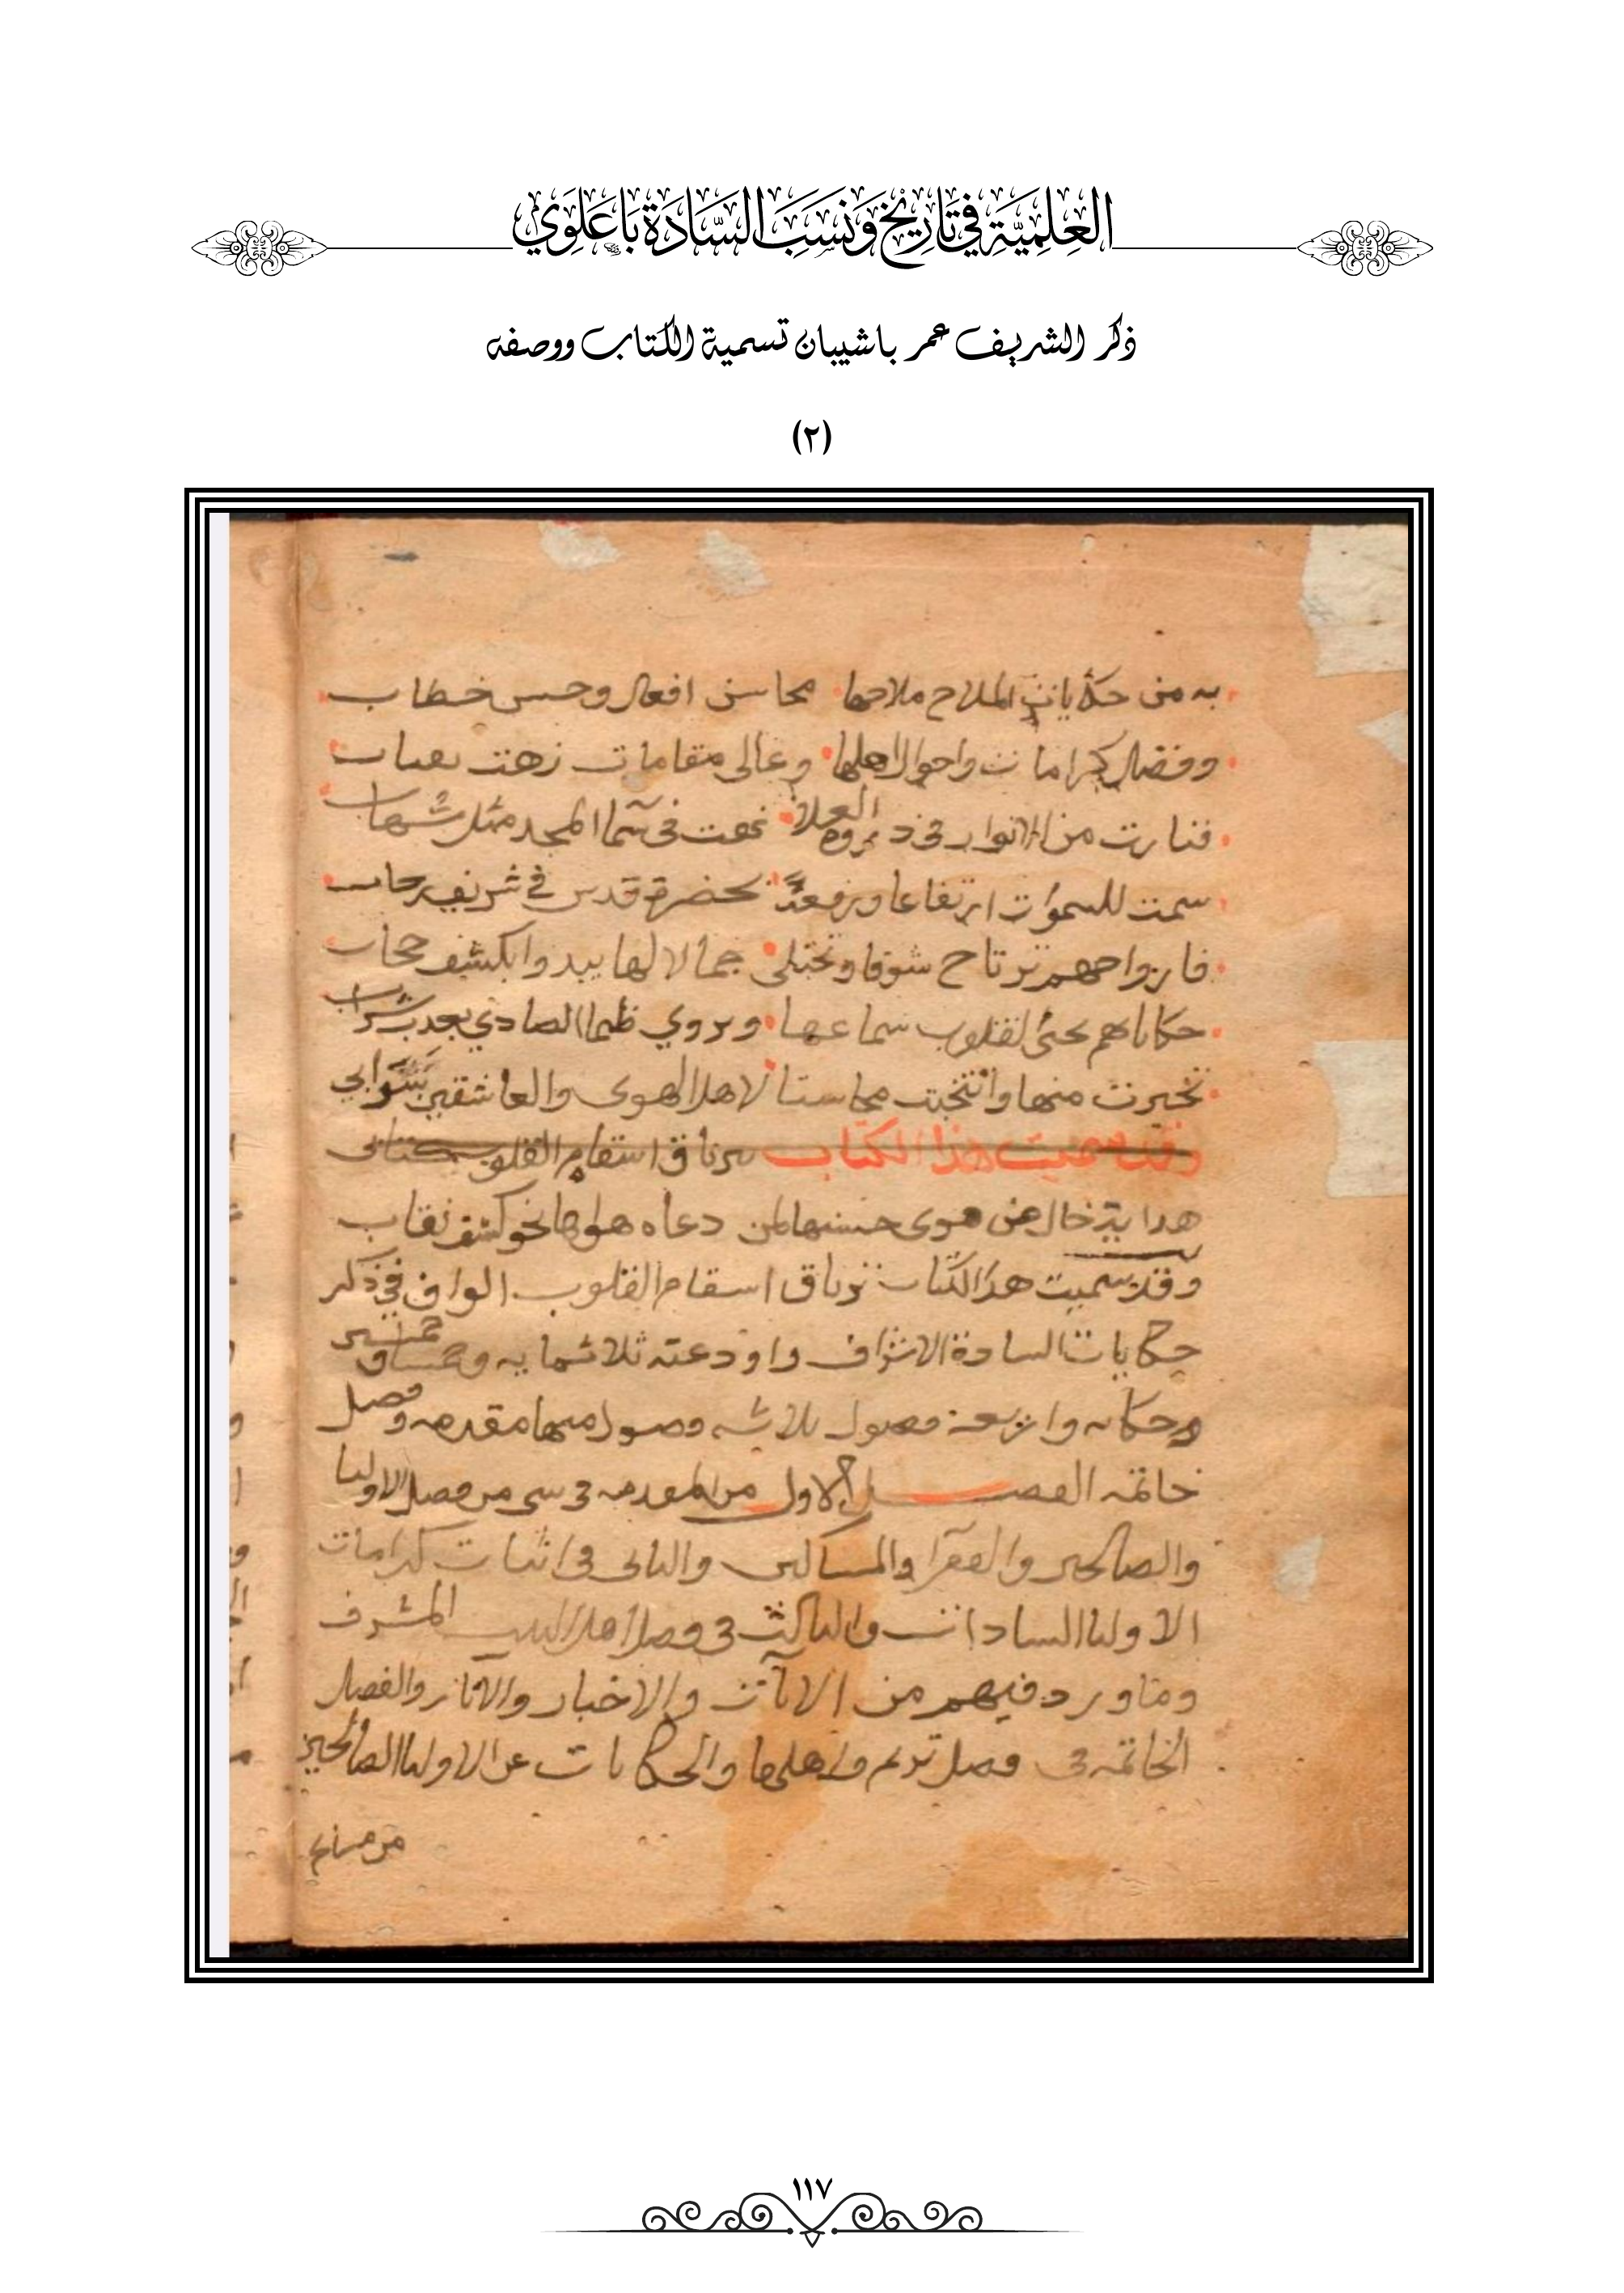 العِلمِيَّةِ فِي تَارِيْخِ وَنَسَبِ السَّادَةِ بَاعَلَوِي
ذكر الشريف عمر باشيبان تسمية الكتاب ووصفه
(٢)
به من حكايات الملاح ملاحها محاسن افعال وحسن خطاب
وفضل كرامات واحوال اهلها وعالي مقامات زهت
فنارت من الانوار في ذروة العلا في سما المجد مثل شهاب
سمت للسموات ارتفاعا ورفعة بحضرة قدس في شريف
فارواحهم ترتاح شوقا وتجتلي جمالا لها يبدو بكشف حجاب
سماعها ويروي ظما الصادي بعذب شراب
تخيرت منها وانتخبت محاسنا لاهل الهوى والعاشقين
وقد سميت هذا الكتاب ترياق اسقام القلوب
هوى حسنها لمن دعاه هواها نحو كشف نقاب
وقد سميت هذا الكتاب ترياق اسقام القلوب الواف في ذكر
حكايات السادة الاشراف واودعته ثلاثمايه
وحكايه واربعة فصول ثلاثه فصول منها مقدمه وفصل
خاتمه الفصل الاول من المقدمه في شي من فضل الاوليا
والصالحين والفقرا والمساكين والثاني في اثبات كرامات
الاوليا السادات والثالث في فضل اهل البيت المشرف
وما ورد فيهم من الايات والاخبار والاثار والفصل
الخاتمه في فضل تريم واهلها والحكايات عن الاوليا الصالحين
١١٧